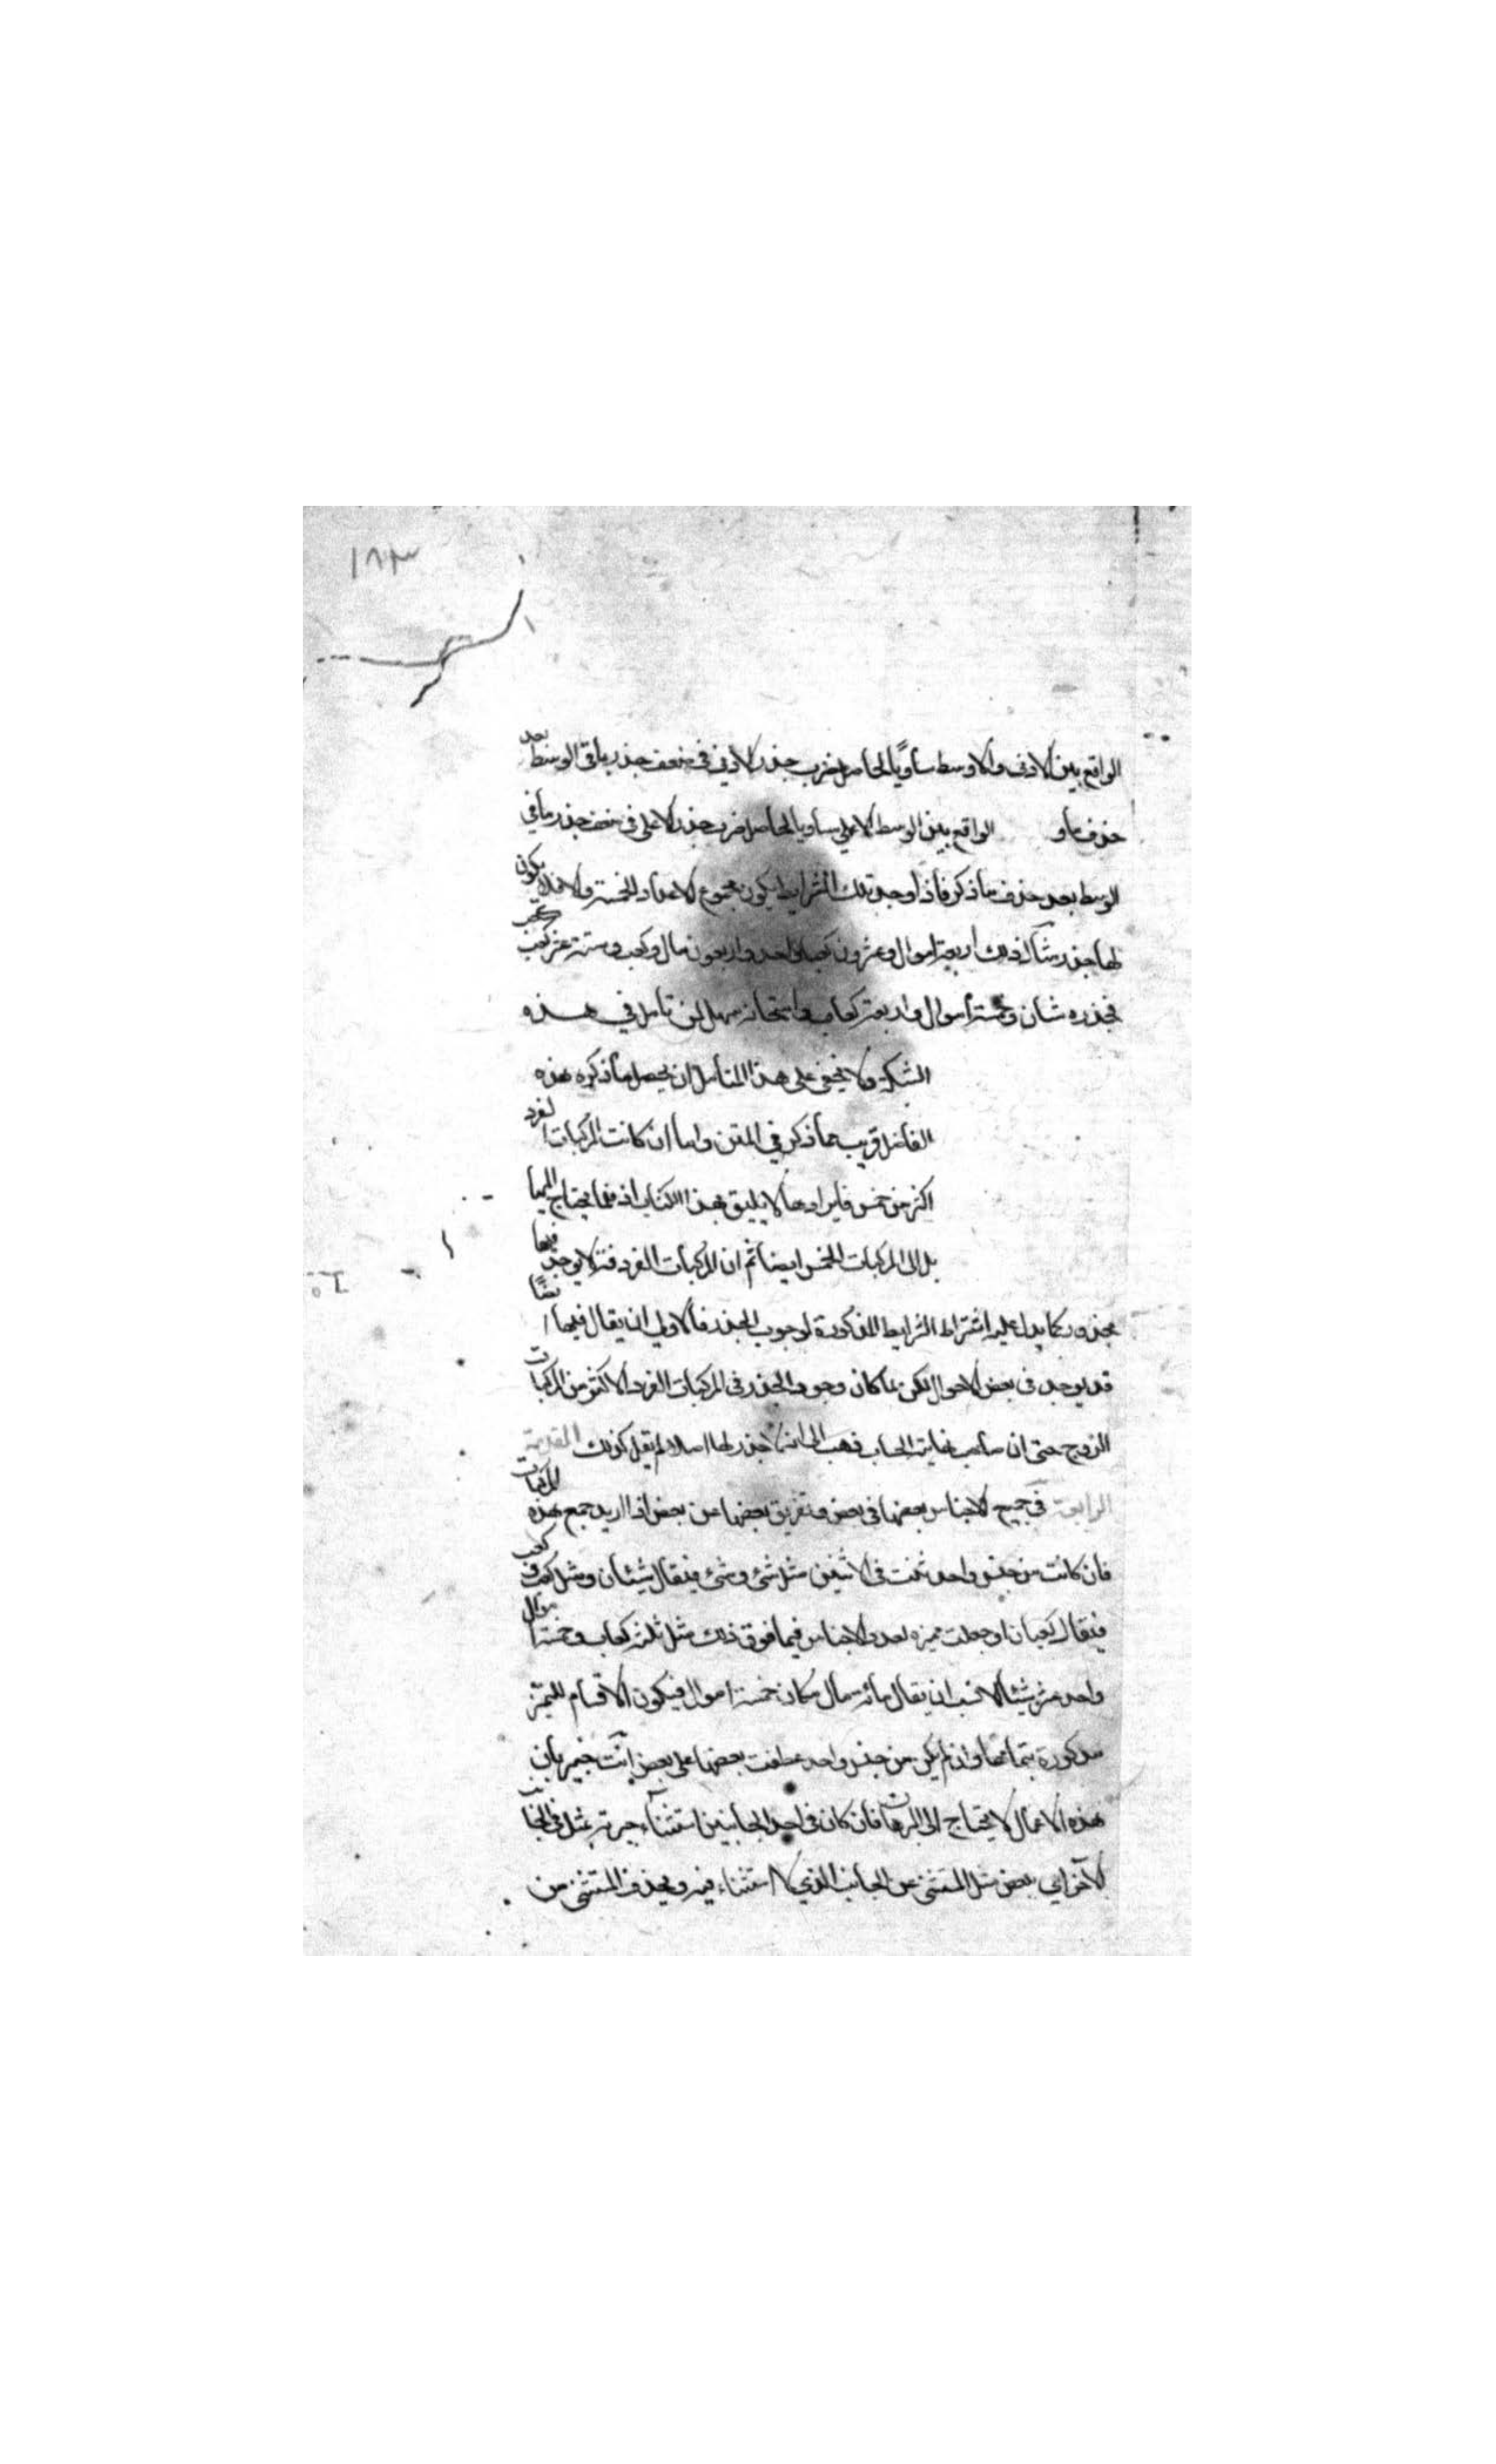 ١٨٣
الواقع بين الادنى والاوسط مساويًا لحاصل ضرب جذر الادنى في ضعف جذر باقي الوسط بعد
حذف ما و الواقع بين الوسط الاعلى مساويا لحاصل ضرب جذر الاعلى في ضعف جذر باقي
الوسط بعد حذف ما ذكر فاذا وجد تلك الشرايط يكون مجموع الاعداد الخمسة والا فلا يكون
لها جذر مثال ذلك اربعة اموال وعشرون كعبا واحد واربعون مال وكعب وستة عشر كعب كعب
فجذره شيأن وخمسة اموال واربعة كعاب وامتحانه سهل لمن تامل في هذه
الشبكة ولا يخفى على هذا المتأمل ان يحصل ما ذكره هذه
الفاضل قريب مما ذكر في المتن واما ان كانت المركبات الفرد
اكثر من خمس فايرادها لا يليق بهذا الكتاب اذ قلما يحتاج اليها
بل الى المركبات الخمس ايضا ثم ان المركبات الفرد قد لا يوجد فيها
مجذور كما يدل عليه اشتراط الشرايط المذكورة لوجوب الجذر فالاولى ان يقال فيها ايضًا
قد يوجد في بعض الاحوال لكن لما كان وجود الجذر في المركبات الفرد الاكثر من المركبات
الزوج حتى ان صاحب نهاية الحساب ذهب الى انه لا جذر لها اصلا لم يقل كذلك المقدمة
الرابعة في جميع الاجناس بعضها في بعض وتفريق بعضها من بعض اذا اريد جمع هذه المركبات
فان كانت من جنس واحد ثنت في الاثنين مثل شئ وشئ فيقال شيئان ومثل كعب وكعب
فيقال كعبان او جعلت مميزه لعدد الاجناس فيما فوق ذلك مثل ثلثة كعاب وخمسة اموال
واحد عشر شيئا الانسب ان يقال مائة مال مكان خمسة اموال فيكون الاقسام للمميز
مذكورة بتمامها وان لم يكن من جنس واحد عطفت بعضها على بعض انت خبير بان
هذه الاعمال لا يحتاج الى البرهان فان كان في احد الجانبين استثناء جبرته بمثل في الجانب
الآخر اي بعض مثل المستثنى من الجانب الذي لا استثناء فيه ويحذف المستثنى من